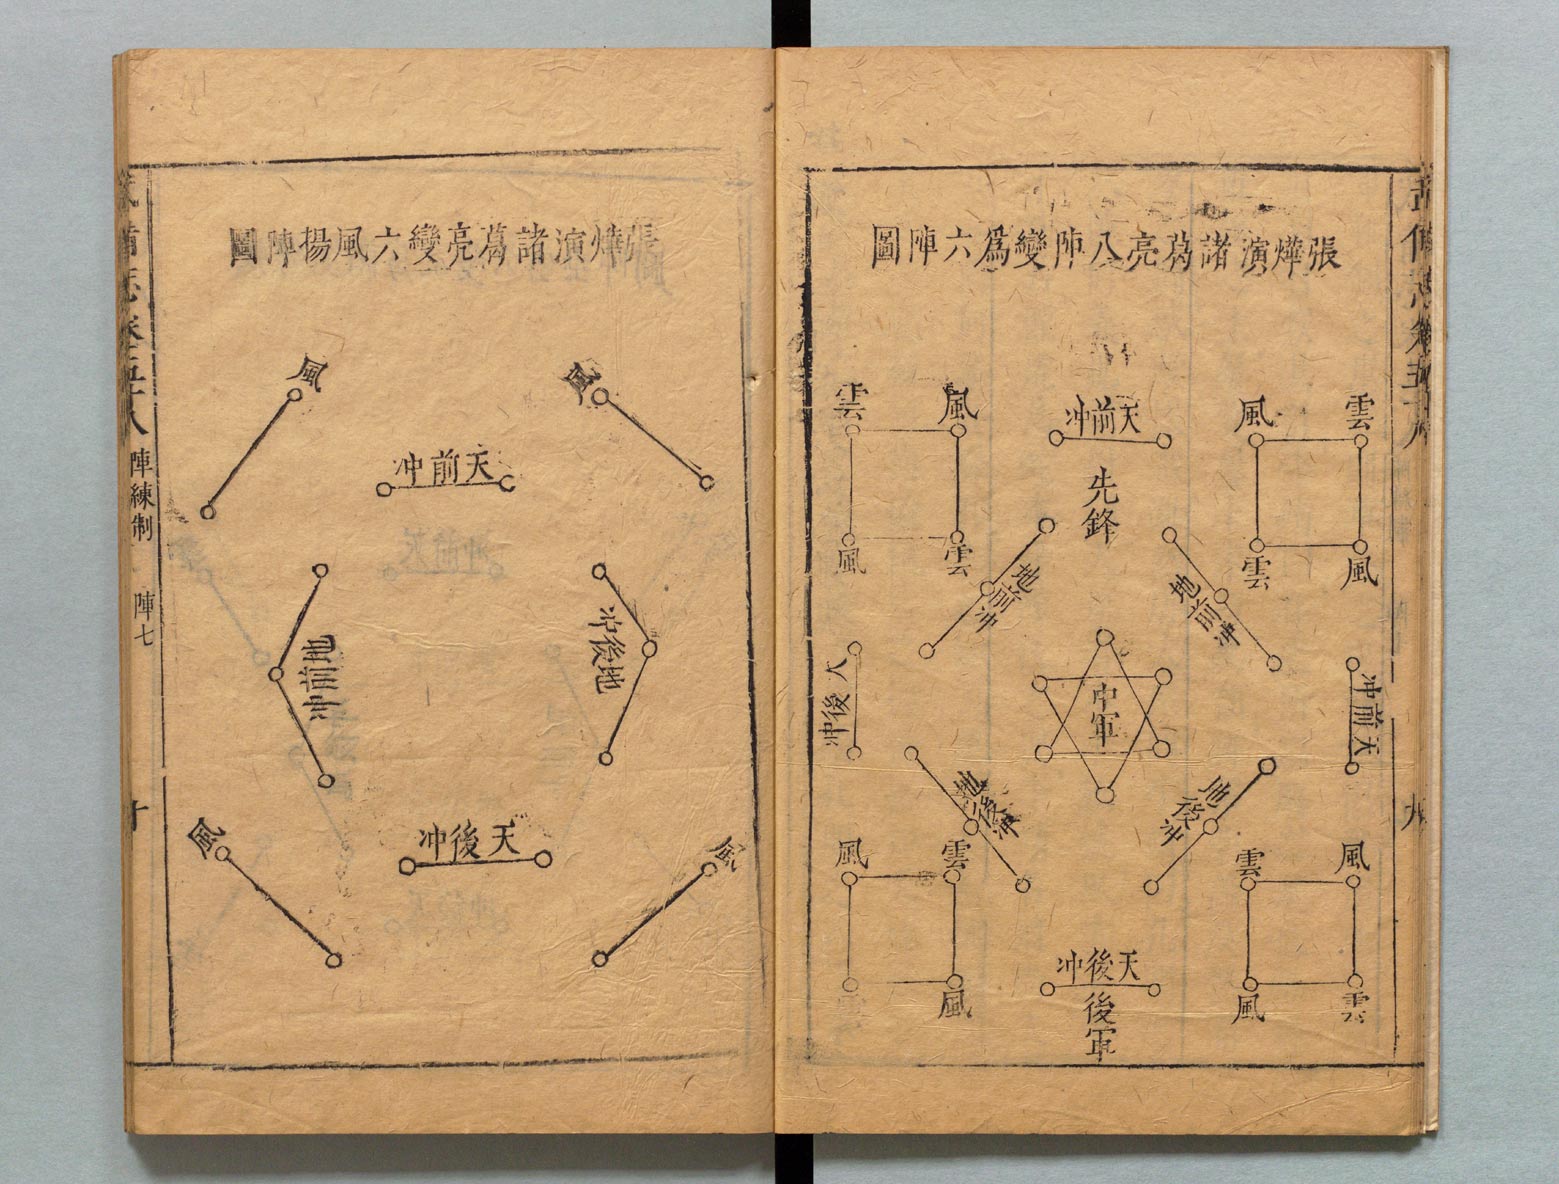 張燁演諸葛亮八陣變爲六陣圖
雲
風
天前冲
風
雲
先鋒
風
雲
雲
風
地前冲
地前冲
後冲
天前冲
中軍
地後冲
地後冲
風
雲
雲
風
天後冲
後軍
風
風
雲
張燁演諸葛亮變六風揚陣圖
風
風
天前冲
地前冲
地後冲
天後冲
風
風
陣練制
陣七